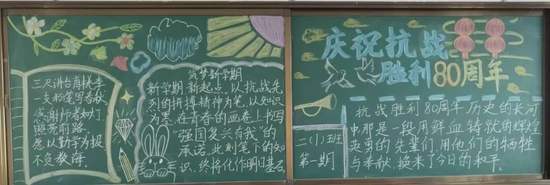 三尺讲台育桃李
一支粉笔写春秋
感谢师者如灯
照亮前路
愿以勤学为报
不负教诲
筑梦新学期
新学期 新起点，以抗战先
烈的拼搏精神为笔，以知识
为墨，在青春的画卷上书写
“强国复兴有我”的
承诺，此刻笔下的知
识，终将化作明日基石
庆祝抗战
胜利80周年
二（1）班
第一期
抗战胜利80周年历史的长河
中那是一段用鲜血铸就的辉煌
英勇的先辈们，用他们的牺牲
与奉献，换来了今日的和平。